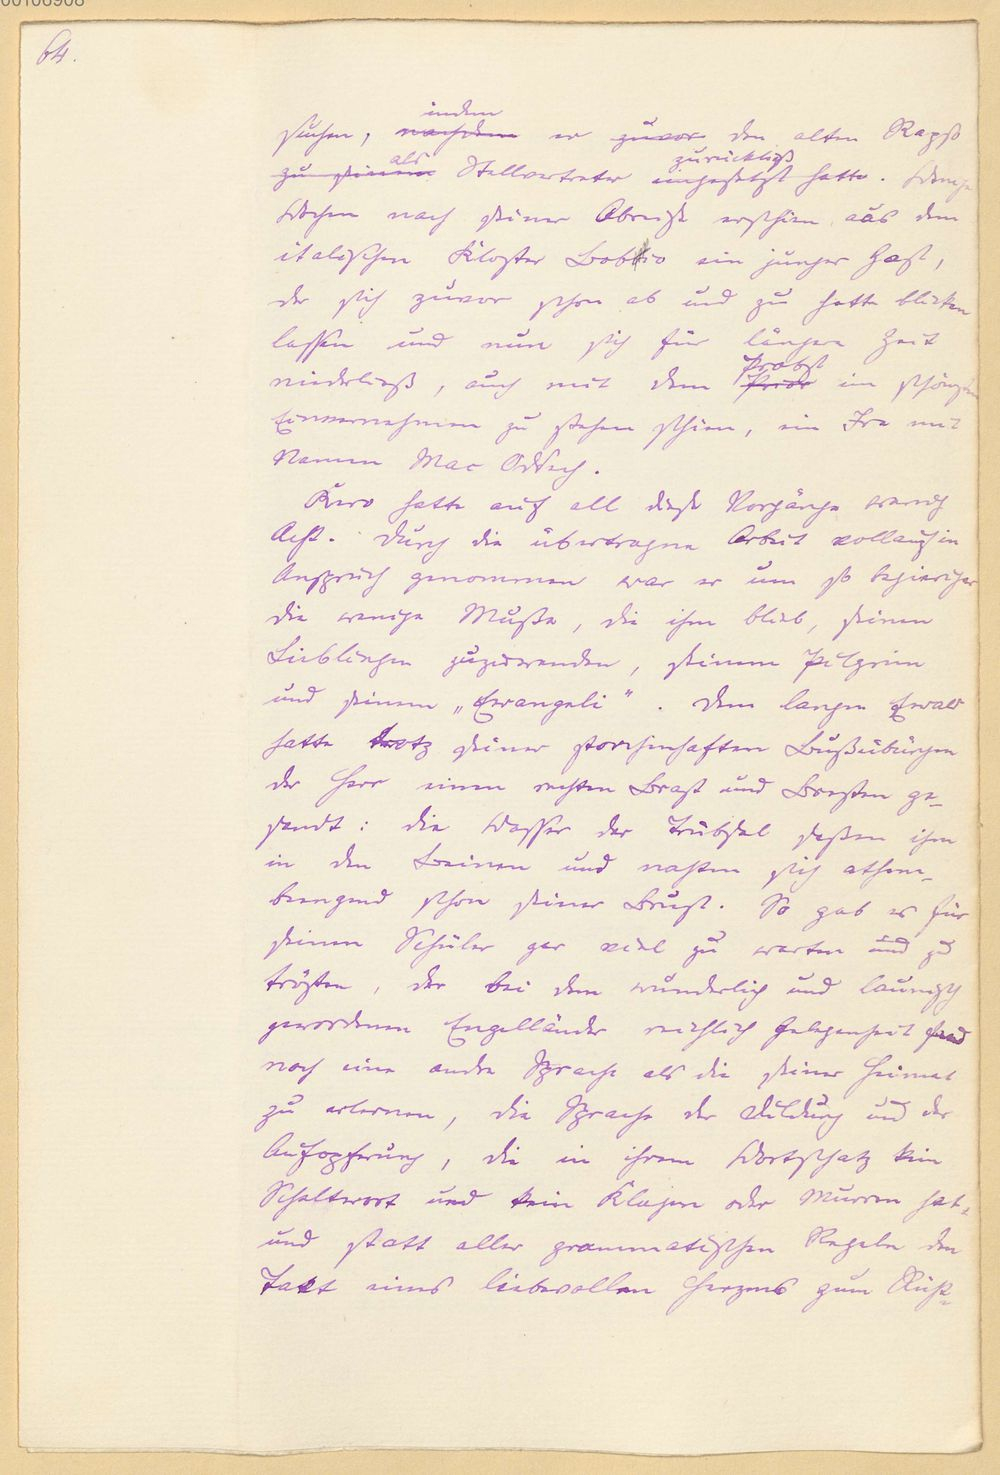 60106908
64.
indem
suchen, nachdem er zuvor den alten Rapso
als zurückließ
zu seinem Stellvertreter eingesetzt hatte. Wenige
Wochen nach seiner Abreise erschien aus dem
italischen Kloster Bobbio ein junger Gast,
der sich zuvor schon ab und zu hatte blicken
lassen und nun sich für längere Zeit
Probst
niederließ, auch mit dem Prior im schönsten
Einvernehmen zu stehen schien, ein Ire mit
Namen Mac
Kero hatte auf all diese Vorgänge wenig
Acht. Durch die übertragne Arbeit vollauf in
Anspruch genommen war er um so begieriger
die wenige Muße, die ihm blieb, seinen
Lieblingen zuzuwenden, seinem Pilgrim
und seinem „Evangeli". Dem langen Ewald
hatte trotz seiner storchenhaften Bußübungen
der Herr einen rechten Brast und Bresten ge-
sandt: die Wasser der Trübsal saßen ihm
in den Beinen und nahten sich athem-
beengend schon seiner Brust. So gab es für
seinen Schüler gar viel zu warten und zu
trösten, der bei dem wunderlich und launisch
gewordenen Engelländer reichlich Gelegenheit fand
noch eine andre Sprache als die seiner Heimat
zu erlernen, die Sprache der Duldung und der
Aufopferung, die in ihrem Wortschatz kein
Scheltwort und kein Klagen oder Murren hat,
und statt aller grammatischen Regeln den
Takt eines liebevollen Herzens zum Richt-